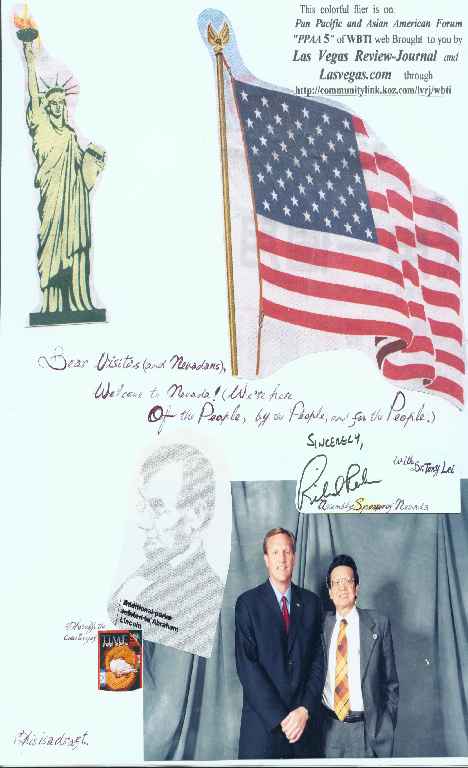 This colorful flier is on
Pan Pacific and Asian American Forum
"PPAA 5" of WBTI web Brought to you by
Las Vegas Review-Journal and
Lasvegas.com through
http://communitylink.koz.com/lvrj/wbti
Dear Visitors (and Nevadans),
Welcome to Nevada! (We're here
Of the People, by the People, and for the People.)
SINCERELY,
with Dr. Tony Lei
Assembly Speaker, Nevada
Lincoln
Through the
Courtesy of
This is a draft.